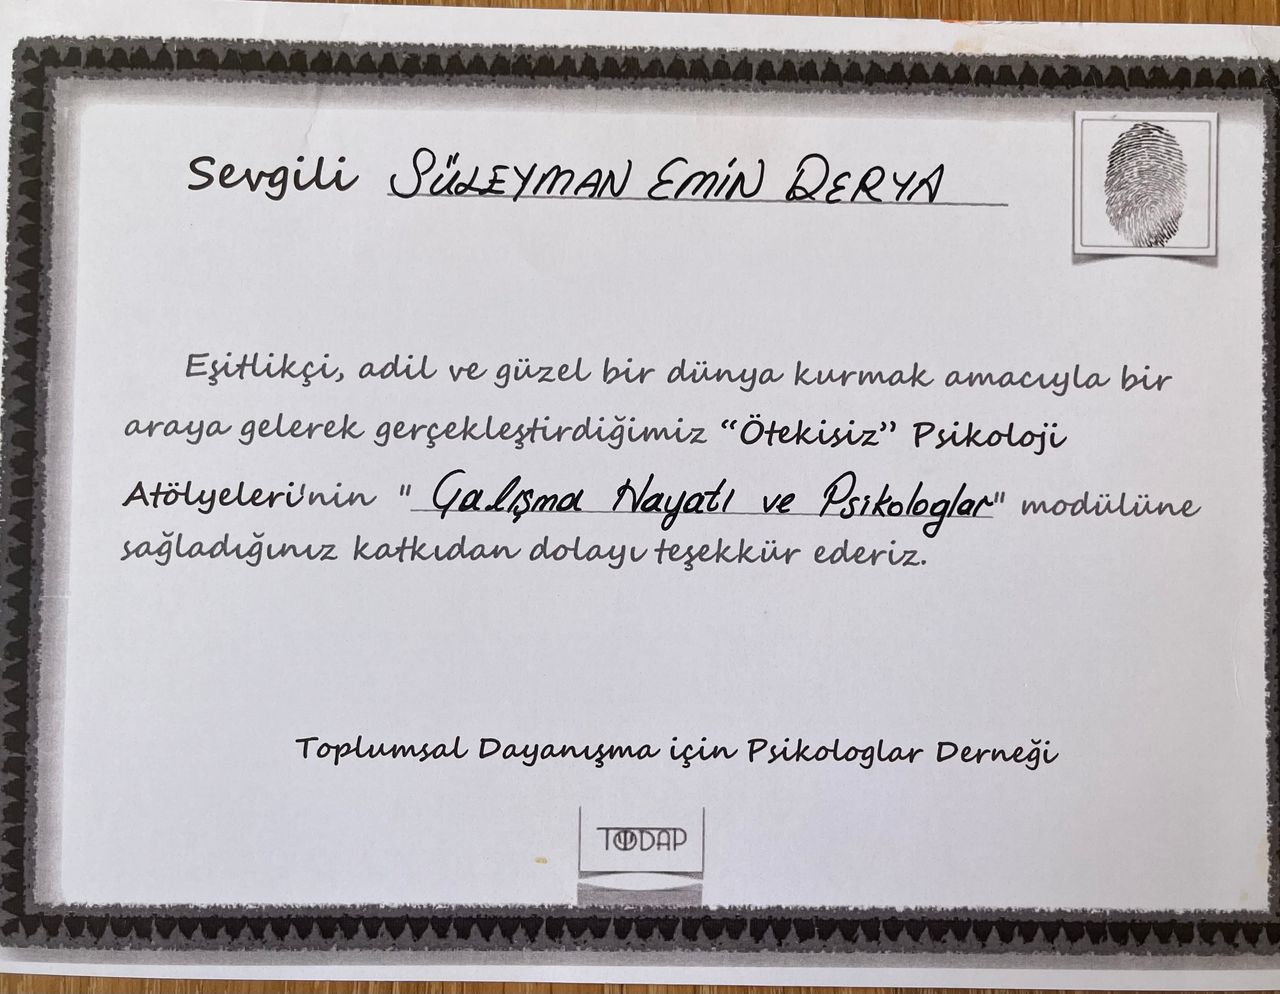 Sevgili SÜLEYMAN EMİN DERYA
Eşitlikçi, adil ve güzel bir dünya kurmak amacıyla bir
araya gelerek gerçekleştirdiğimiz “Ötekisiz” Psikoloji
Atölyeleri'nin " Çalışma Hayatı ve Psikologlar" modülüne
sağladığınız katkıdan dolayı teşekkür ederiz.
Toplumsal Dayanışma için Psikologlar Derneği
TODAP